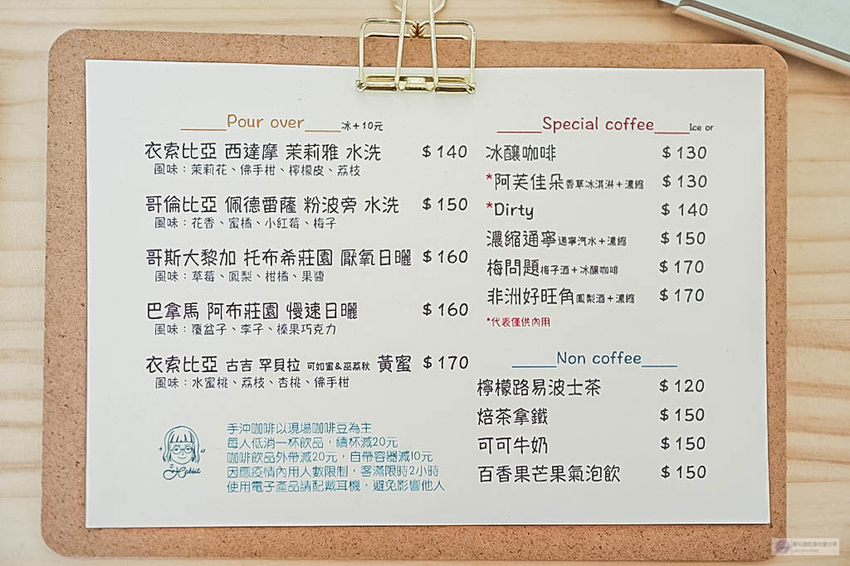 Pour over 冰+10元
衣索比亞 西達摩 茉莉雅 水洗 $140
風味：茉莉花、佛手柑、檸檬皮、荔枝
哥倫比亞 佩德雷薩 粉波旁 水洗 $150
風味：花香、蜜橘、小紅莓、梅子
哥斯大黎加 托布希莊園 厭氧日曬 $160
風味：草莓、鳳梨、柑橘、果醬
巴拿馬 阿布莊園 慢速日曬 $160
風味：覆盆子、李子、榛果巧克力
衣索比亞 古吉 罕貝拉 可如蜜&巫荔秋 黃蜜 $170
風味：水蜜桃、荔枝、杏桃、佛手柑
手沖咖啡以現場咖啡豆為主
每人低消一杯飲品，續杯減20元
咖啡飲品外帶減20元，自帶容器減10元
因應疫情內用人數限制，客滿限時2小時
使用電子產品請配戴耳機，避免影響他人
Special coffee Ice or
冰釀咖啡 $130
*阿芙佳朵 香草冰淇淋+濃縮 $130
*Dirty $140
濃縮通寧 通寧汽水+濃縮 $150
梅問題 梅子酒+冰釀咖啡 $170
非洲好旺角 鳳梨酒+濃縮 $170
*代表僅供內用
Non coffee
檸檬路易波士茶 $120
焙茶拿鐵 $150
可可牛奶 $150
百香果芒果氣泡飲 $150